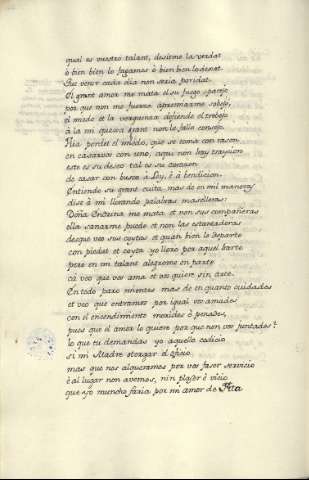 qual es vuestro talent, desitme la verdat
ò bien bien lo fagamos ò bien bien lo dexat
Que venir cada dia non seria poridat.
El grant amor me mata el su fuego parejo
por que non me fuerza apremiarme sobejo,
el miedo et la verguenza defiende el trebejo
à la mi quexa grant non le fallo consejo.
Fija perdet el miedo, que se toma con rason,
en casarvos con uno, aqui non hay traysion
este es su deseo tal es su corazon
de casar con busco à Ley, è à bendicion.
Entiendo su grant cuita, mas de en mil maneras
dise à mi llorando palabras manselleras:
Doña Endrina me mata et non sus compañeras
ella sanarme puede et non las escantaderas
desque veo sus coytas et quan bien lo departe
con piedat et coyta yo lloro por aquel
pero en mi talant alegrome en parte
cà veo que vos ama et vos quiere sin arte.
En todo paro mientes mas de en quanto cuidades
et veo que entramos por igual vos amades
con el encendimiento morides è penades,
pues que el amor lo quiere por que non vos juntades?
lo que tu demandas yo aquello codicio
si mi Madre otorgar el oficio
mas que nos al queramos por vos faser servicio
è al lugar non avemos, nin plaser è vicio
que yo muncho faria por mi amor de Fita